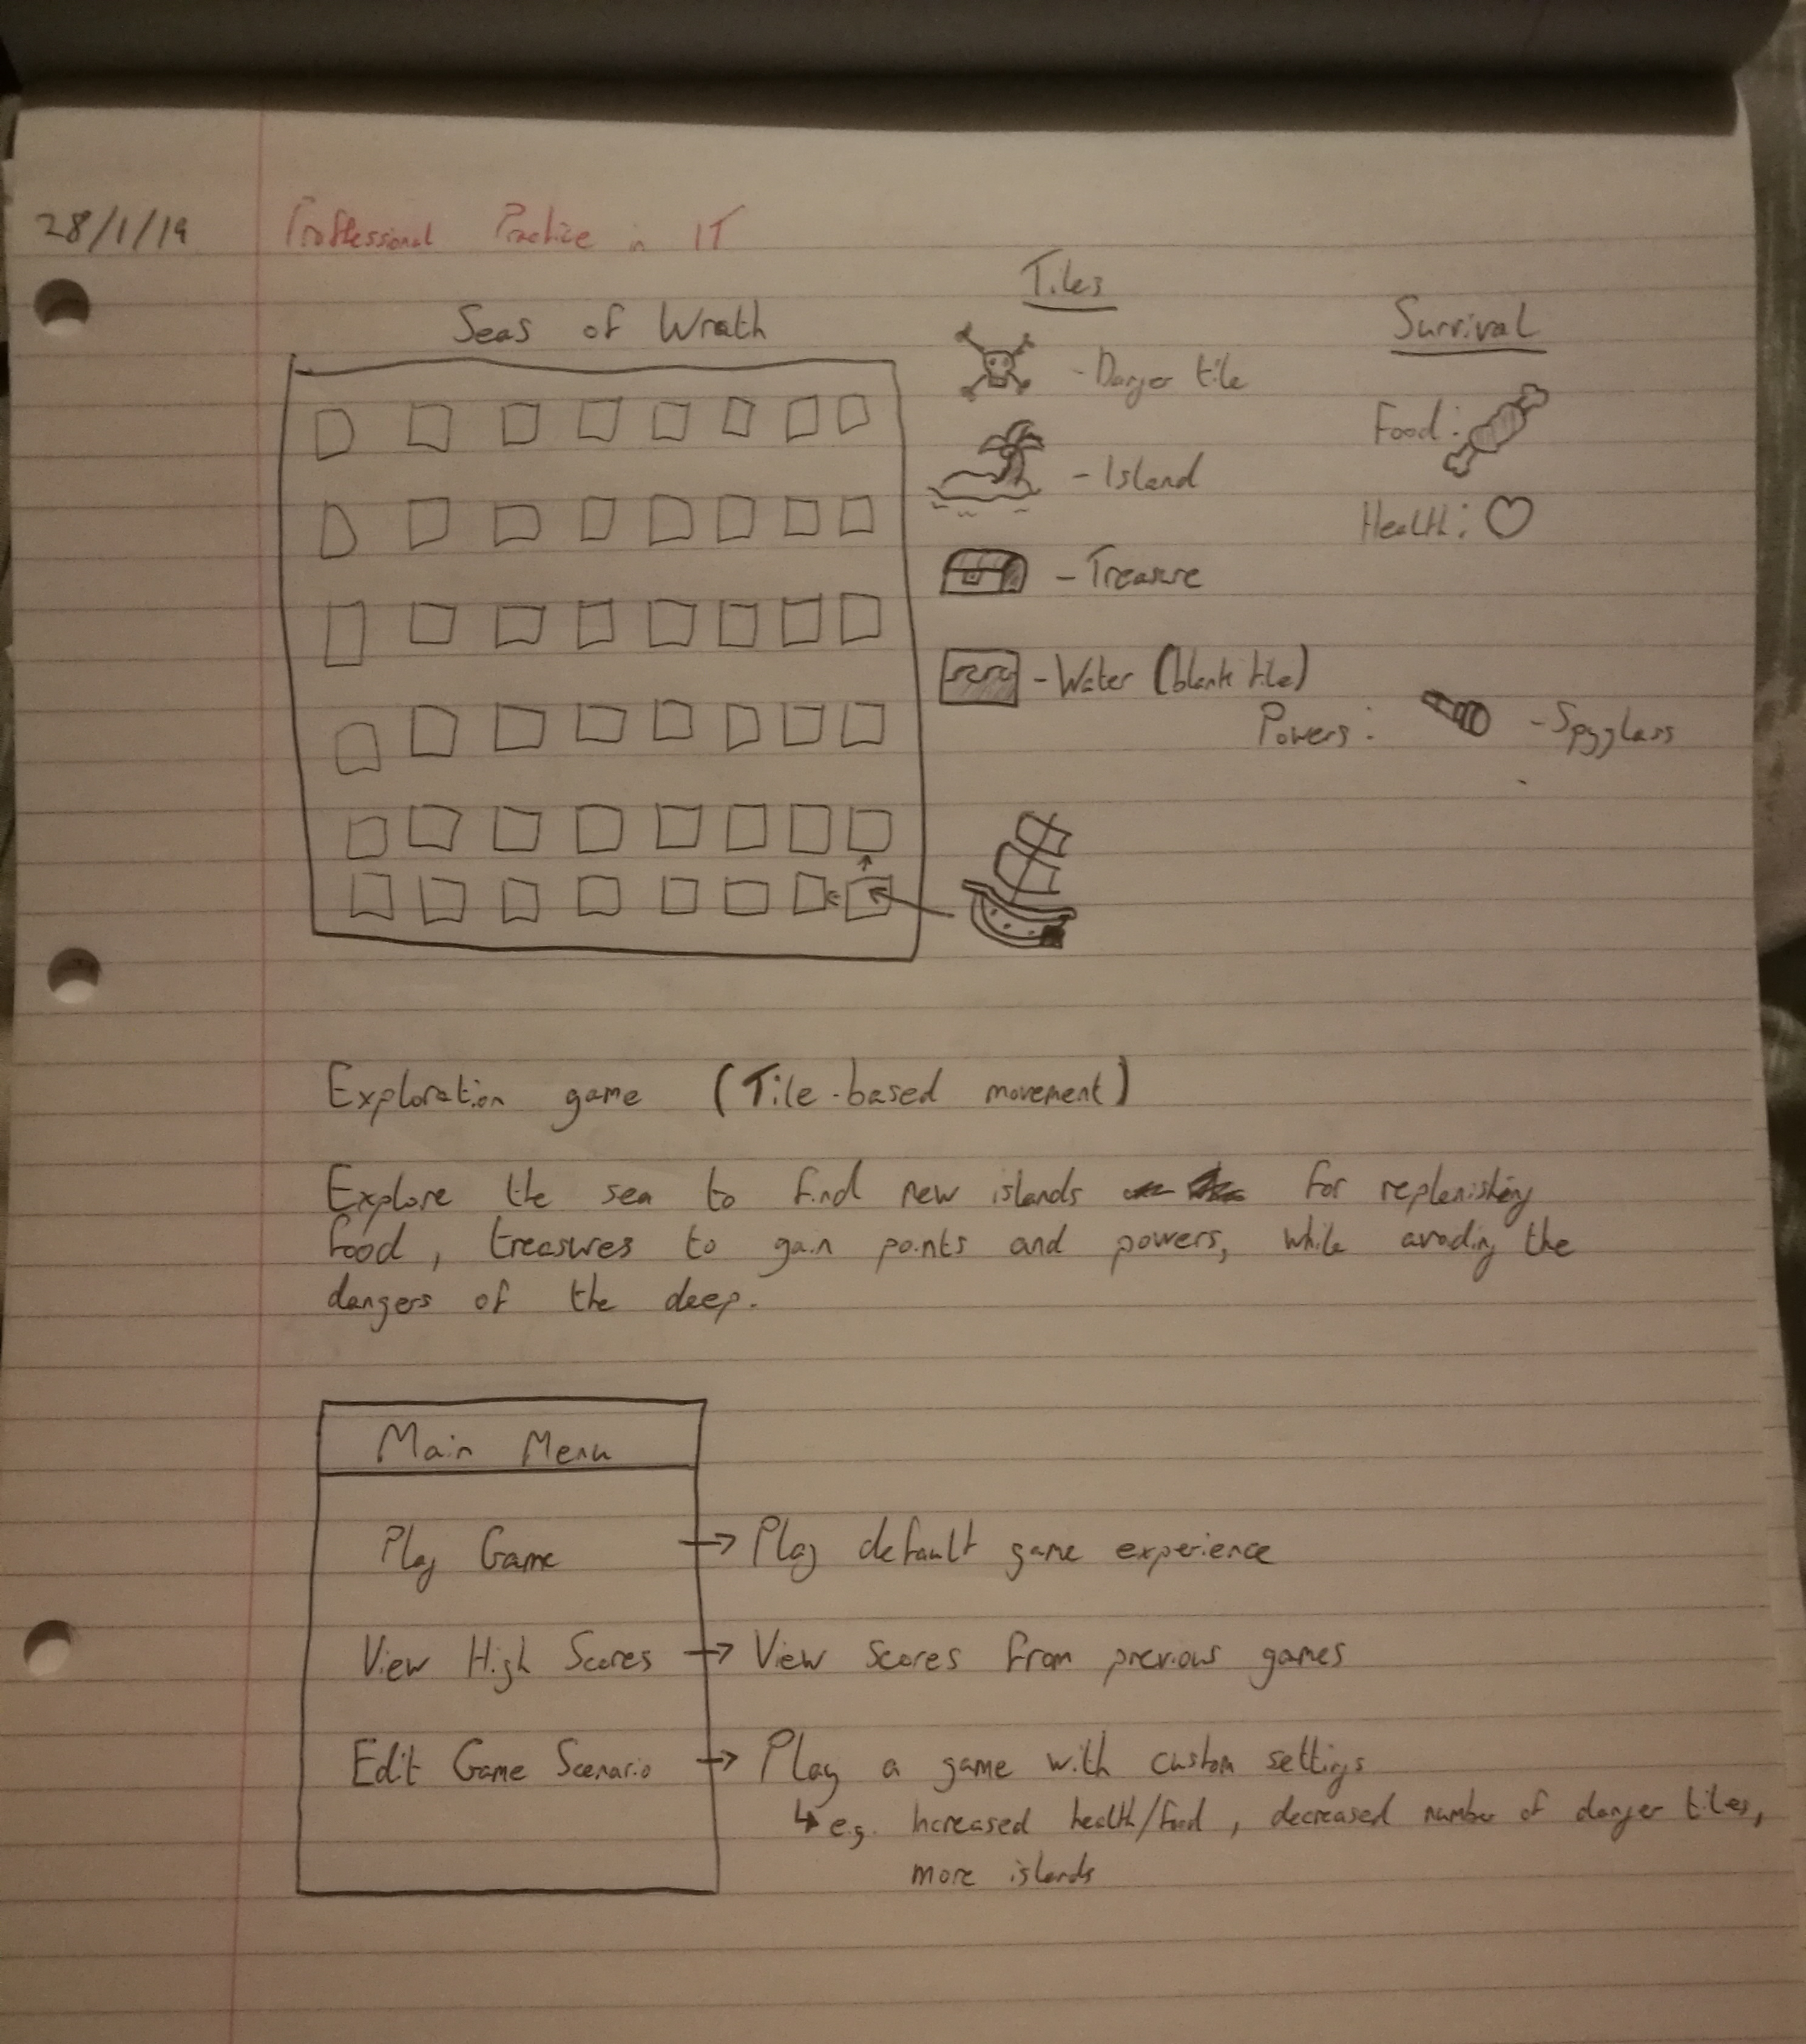 28/1/19 Proffessional Practice in IT
Seas of Wrath
Tiles
- Danger tile
- Island
- Treasure
- Water (blank tile)
Survival
Food:
Health:
Powers: - Spyglass
Exploration game (Tile-based movement)
Explore the sea to find new islands for replenishing
food, treasures to gain points and powers, while avoding the
dangers of the deep.
Main Menu
Play Game → Play default game experience
View High Scores → View scores from previous games
Edit Game Scenario → Play a game with custom settings
↳ e.g. Increased health/food, decreased number of danger tiles,
more islands